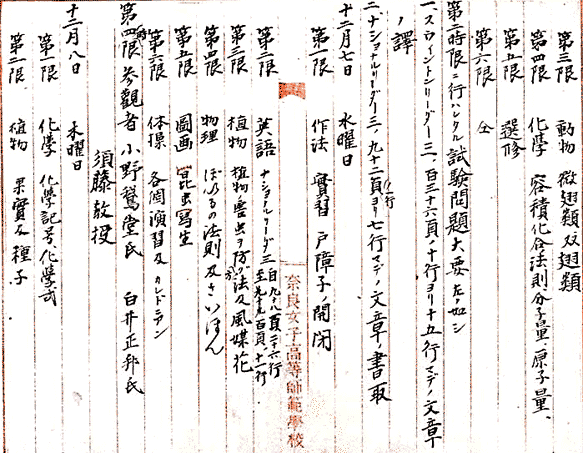 第三限　動物　微翅類双翅類
第四限　化學　容積化合法則分子量、原子量、
第五限　選修
第六限　仝
第二時限ニ行ハレタル試驗問題大要左ノ如シ
一、スウヰントンリーダー三、百三十六頁ノ十行ヨリ十五行マデノ文章
ノ譯
二、ナショナルリーダー三ノ九十二頁ヨリ七行マデノ文章ノ書取
十二月七日　水曜日
第一限　作法　實習　戸障子ノ開閉
第二限　英語　ナショナルリーダー三自九十八頁二十六行
至 百頁十一行
第三限　植物　植物害虫ヲ防グ法及風媒花
第四限　物理　ぼいるの法則及さいほん
第五限　圖画　昆虫寫生
第六限　体操　各個演習及カレドニアン
第四限参觀者　小野鵞堂氏　白井正邦氏
須藤教授
十二月八日　木曜日
第一限　化學　化學記号、化學式
第二限　植物　果實及種子
奈良女子高等師範學校